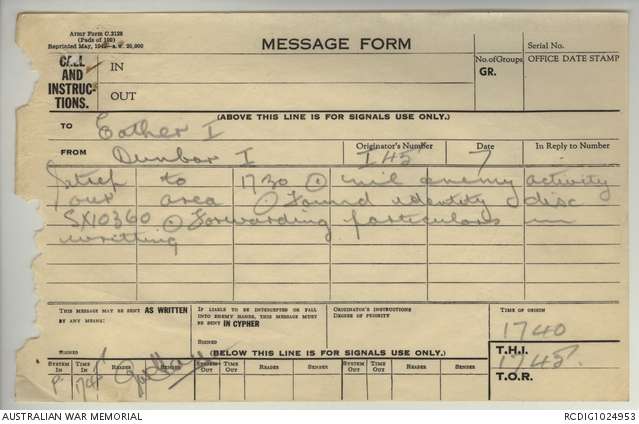 Army Form C.2128
(Pads of 100)
MESSAGE FORM
Serial No.
CALL AND INSTRUCTIONS.
IN
OUT
No. of Groups
GR.
OFFICE DATE STAMP
(ABOVE THIS LINE IS FOR SIGNALS USE ONLY.)
TO Eather I
FROM Dunbar I
Originator's Number I 45
Date 7
In Reply to Number -
Sitrep to 1730 ⊙ nil enemy activity
our area ⊙ Found identity disc
SX10360 ⊙ Forwarding particulars in
writting
THIS MESSAGE MAY BE SENT AS WRITTEN
BY ANY MEANS:
SIGNED
IF LIABLE TO BE INTERCEPTED OR FALL
INTO ENEMY HANDS, THIS MESSAGE MUST
BE SENT IN CYPHER
SIGNED
ORIGINATOR'S INSTRUCTIONS
DEGREE OF PRIORITY
TIME OF ORIGIN
1740
T.H.I.
1745
T.O.R.
(BELOW THIS LINE IS FOR SIGNALS USE ONLY.)
SYSTEM IN TIME IN READER SENDER SYSTEM OUT TIME OUT READER SENDER SYSTEM OUT TIME OUT READER SENDER
AUSTRALIAN WAR MEMORIAL
RCDIG1024953